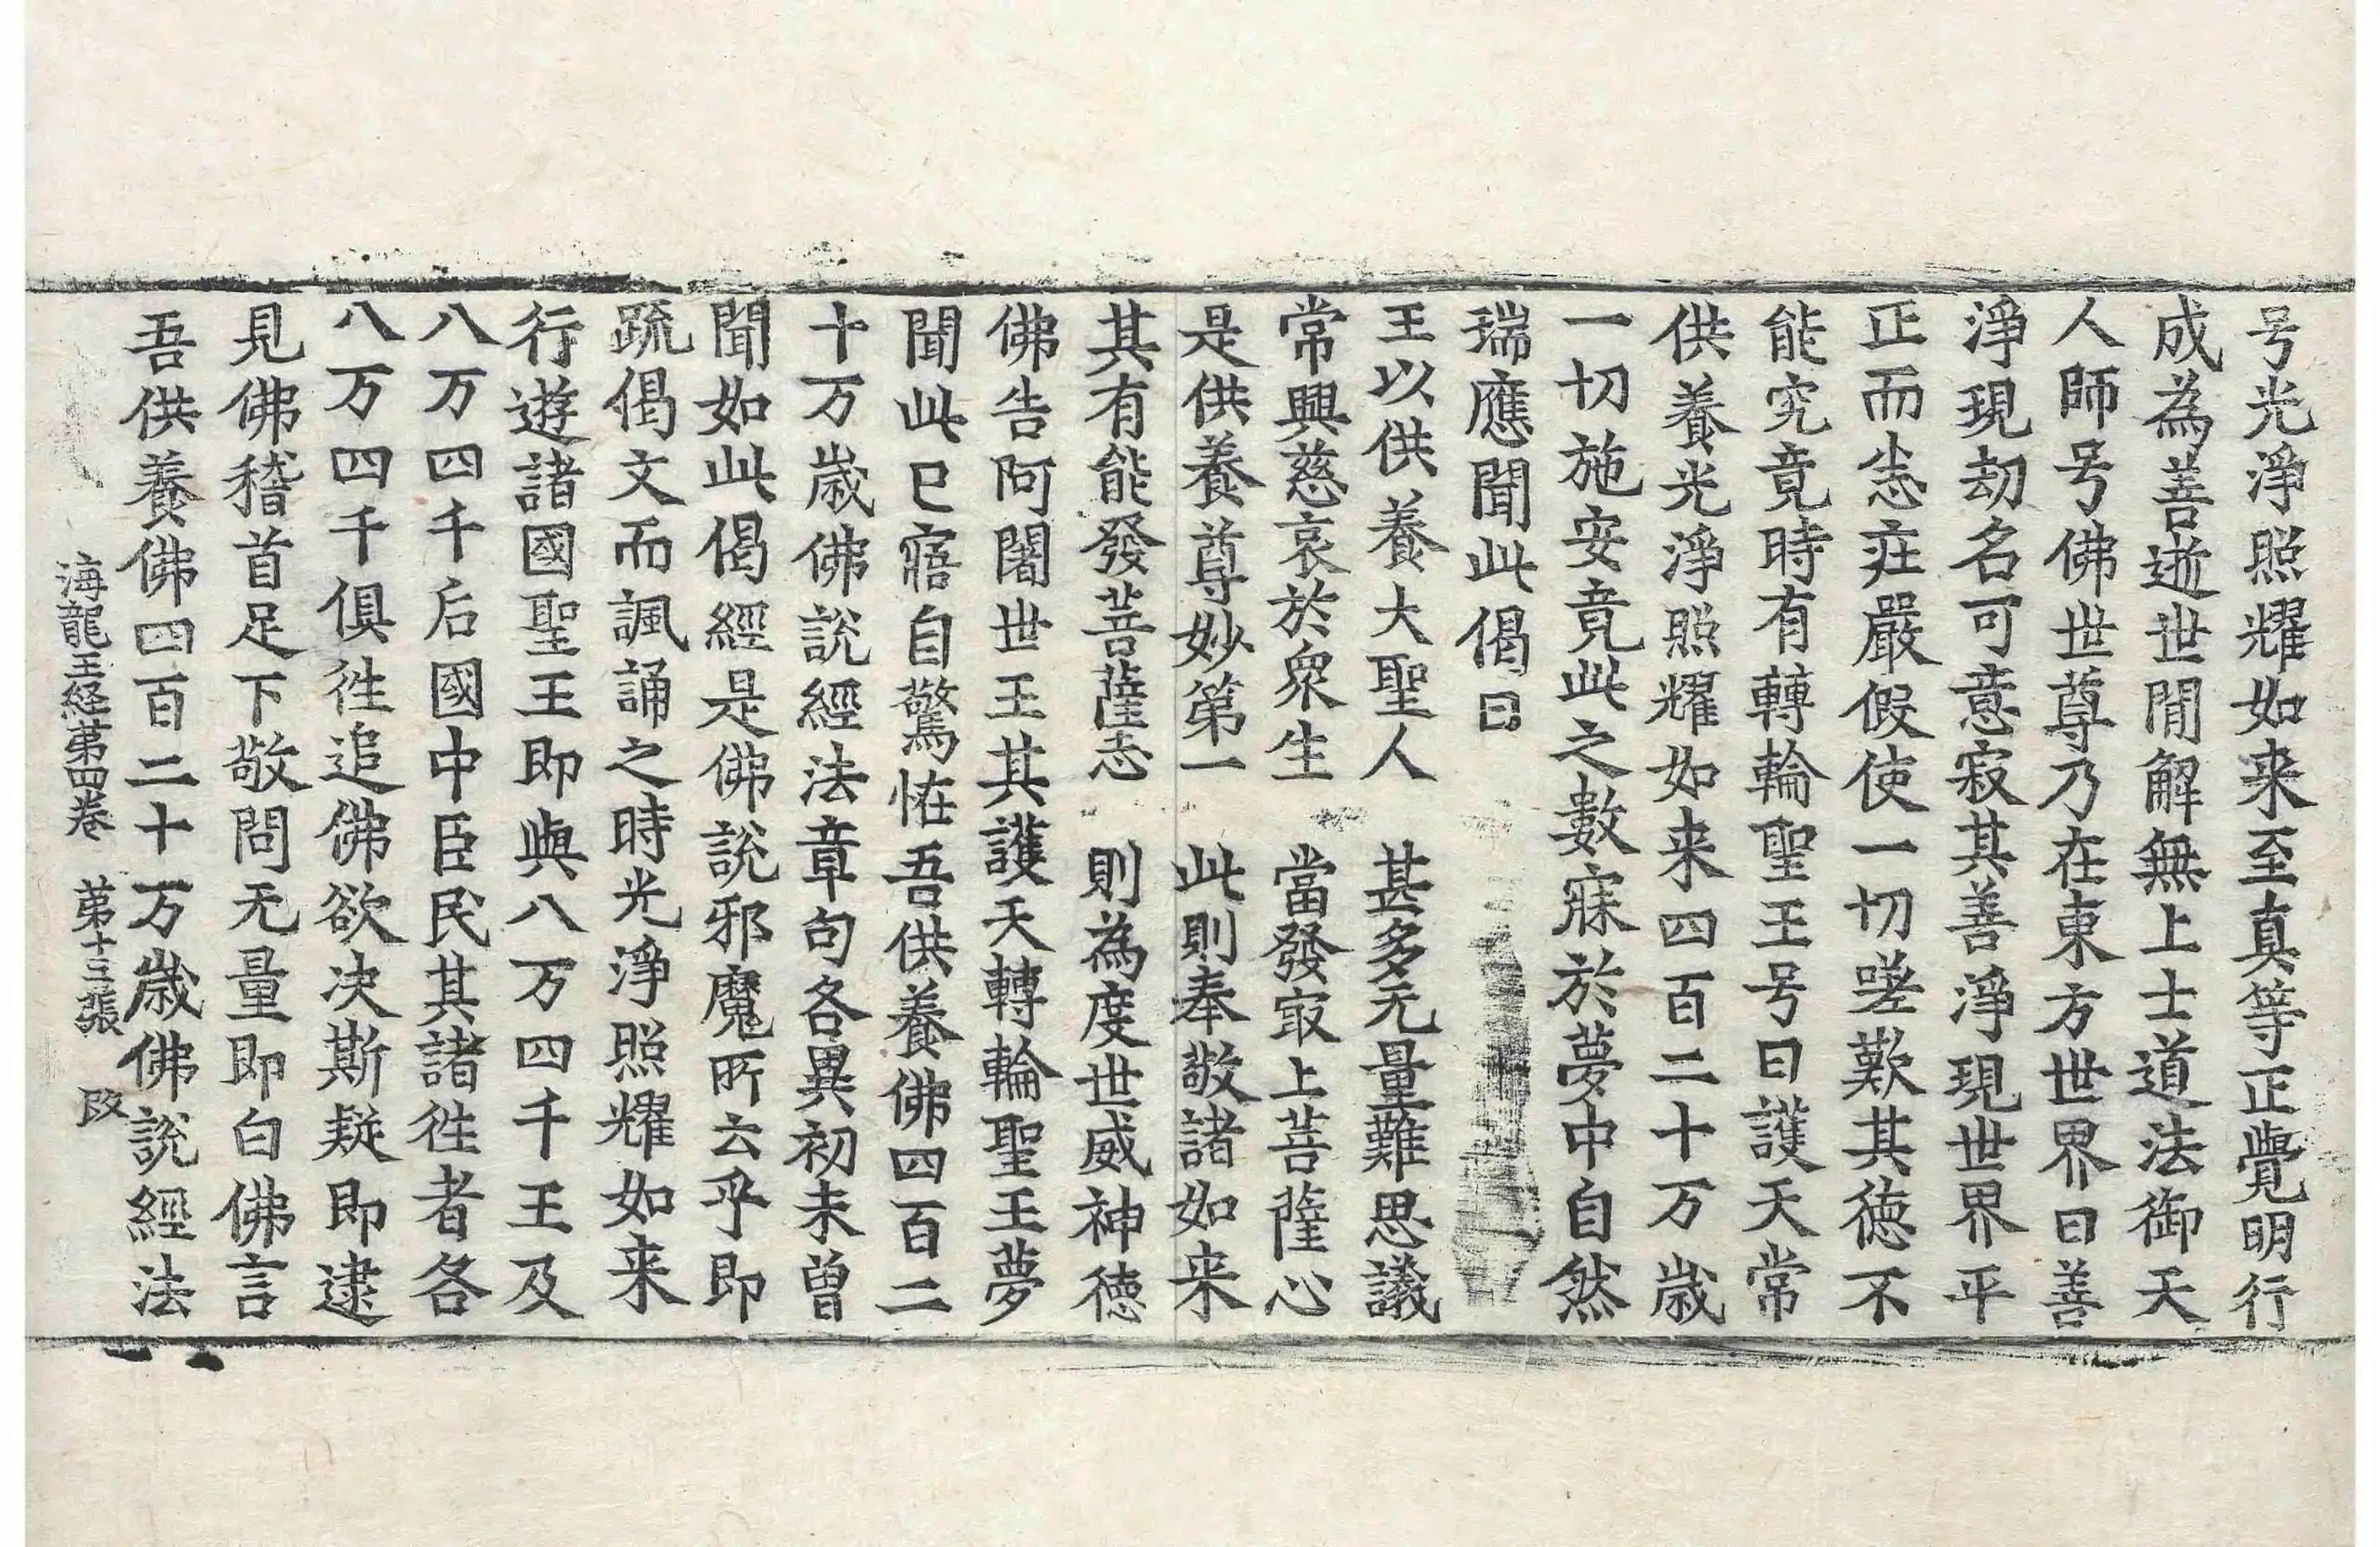 号光淨照耀如来至真等正覺明行
成為善逝世閒解無上士道法御天
人師号佛世尊乃在東方世界曰善
淨現劫名可意寂其善淨現世界平
正而尛㽵嚴假使一切嗟歎其德不
能究竟時有轉輪聖王号曰護天常
供養光淨照耀如来四百二十万歲
一切施安竟此之數寐於夢中自然
瑞應聞此偈曰
王以供養大聖人　甚多无量難思議
常興慈哀於衆生　當發㝡上菩薩心
是供養尊妙第一　此則奉敬諸如来
其有能發菩薩志　則為度世威神德
佛告阿闍世王其護天轉輪聖王夢
聞此已寤自驚恠吾供養佛四百二
十万歲佛說經法章句各異初未曾
聞如此偈經是佛說邪魔所云乎即
䟽偈文而諷誦之時光淨照耀如来
行遊諸國聖王即與八万四千王及
八万四千后國中臣民其諸徃者各
八万四千俱徃追佛欲决斯疑即逮
見佛稽首足下敬問无量即白佛言
吾供養佛四百二十万歲佛說經法
海龍王経苐四卷　苐十三張　改